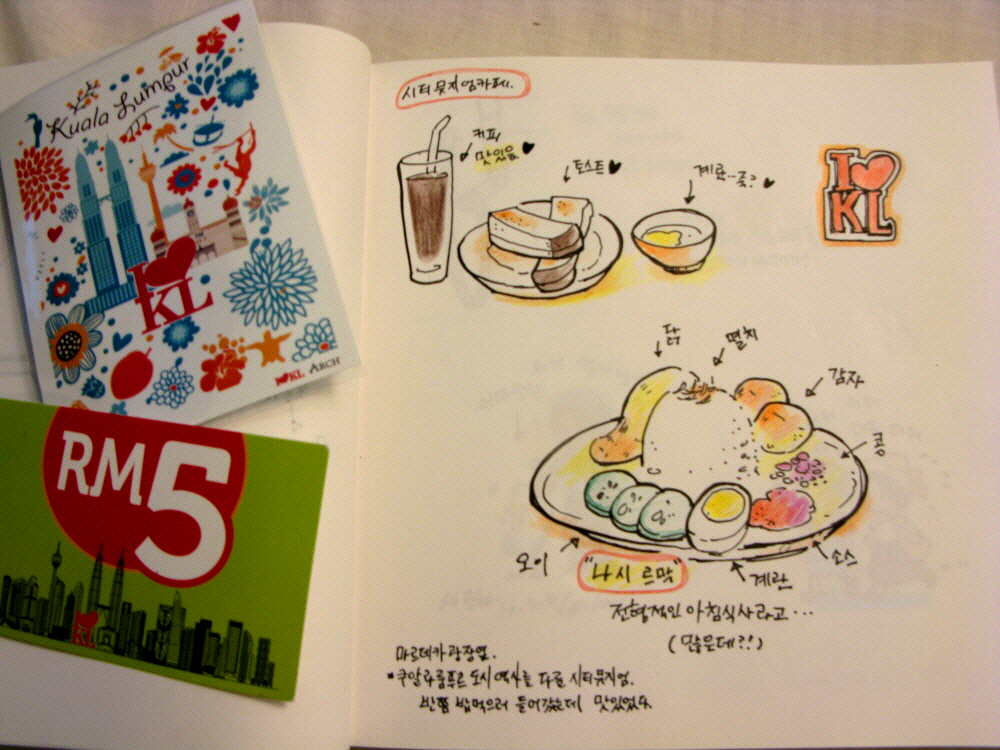 Kuala Lumpur
I KL
I KL ARCH
RM5
KL
시티뮤지엄카페.
커피
맛있음
토스트
계란..죽?
I
KL
닭
멸치
감자
콩
오이
"나시 르막"
계란
소스
전형적인 아침식사라고...
(많은데?!)
마르데카 광장옆.
*쿠알라룸푸르 도시 역사를 다룬 시티뮤지엄.
반쯤 밥먹으러 들어갔는데 맛있었다.